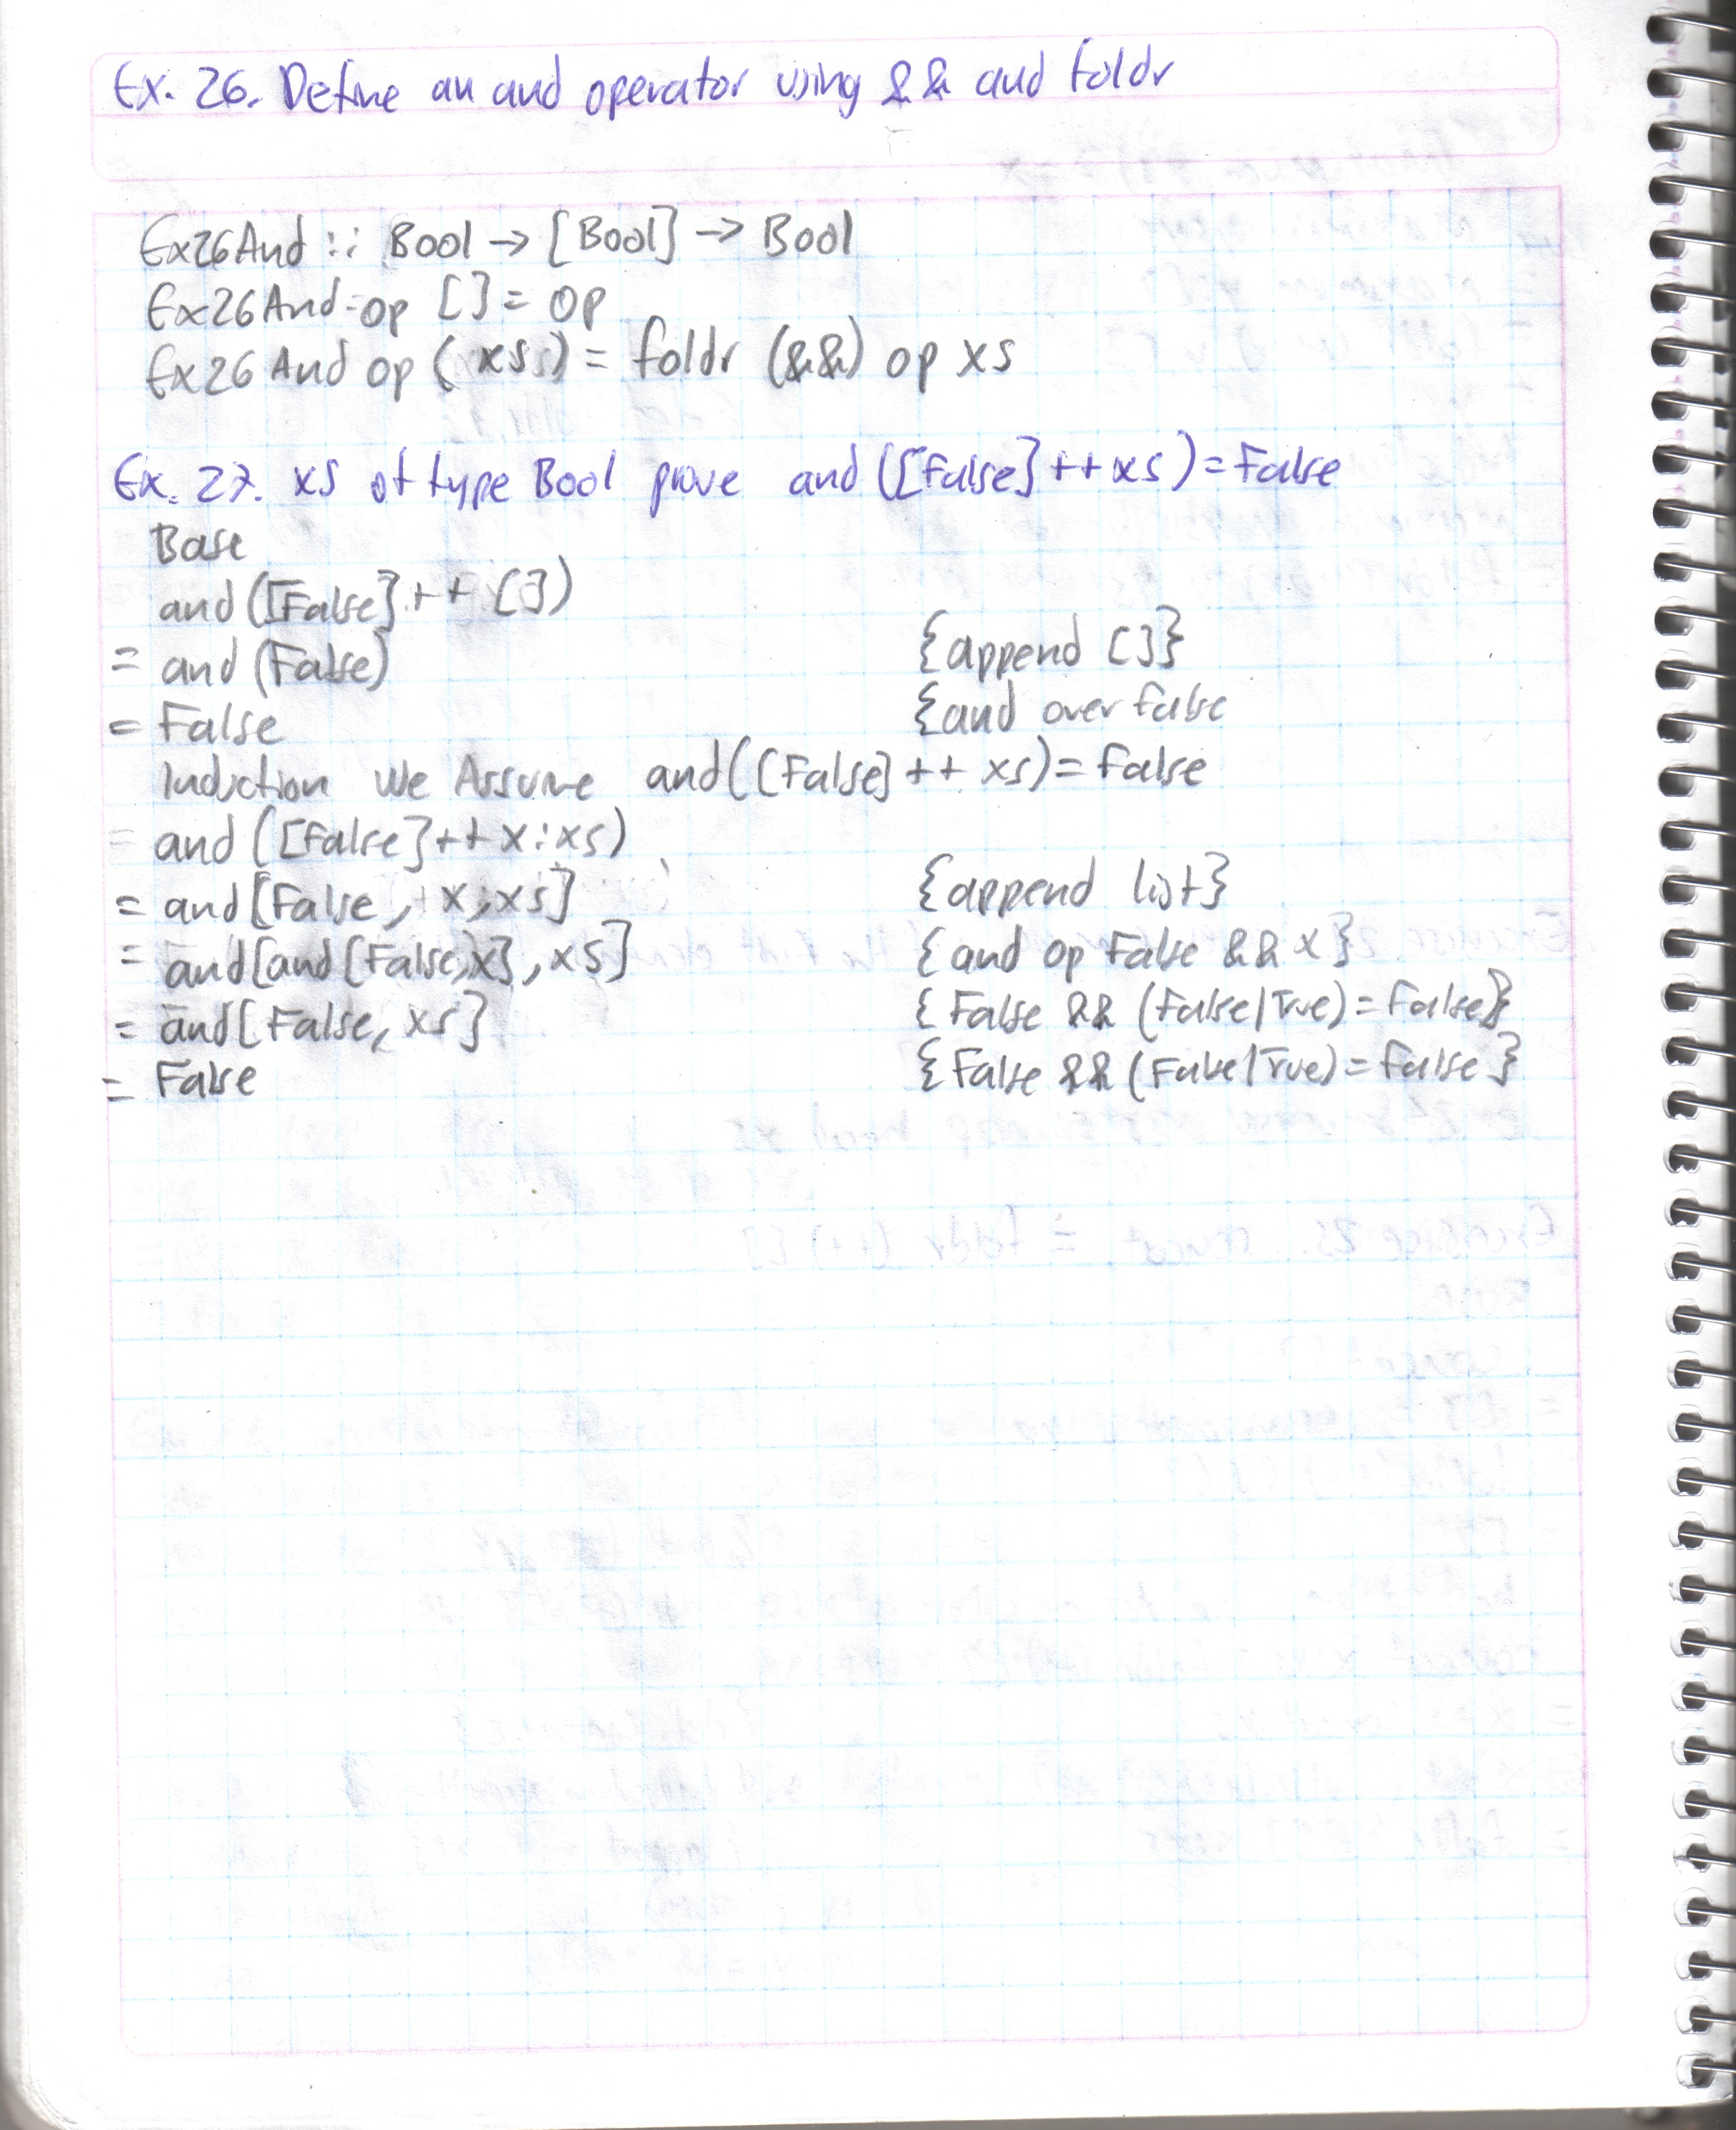 Ex. 26. Define an and operator using && and foldr
Ex26And :: Bool → [Bool] → Bool
Ex26And op [] = op
Ex26 And op (xs) = foldr (&&) op xs
Ex. 27. xs of type Bool prove and ([False] ++ xs) = False
Base
and ([False] ++ [])
= and (False) {append []}
= False {and over false
Induction We Assume and ([False] ++ xs) = False
= and ([False] ++ x:xs)
= and [False, x, xs] {append list}
= and [and [False, x], xs] {and op False && x}
= and [False, xs] {False && (False|True) = False}
= False {False && (False|True) = False}